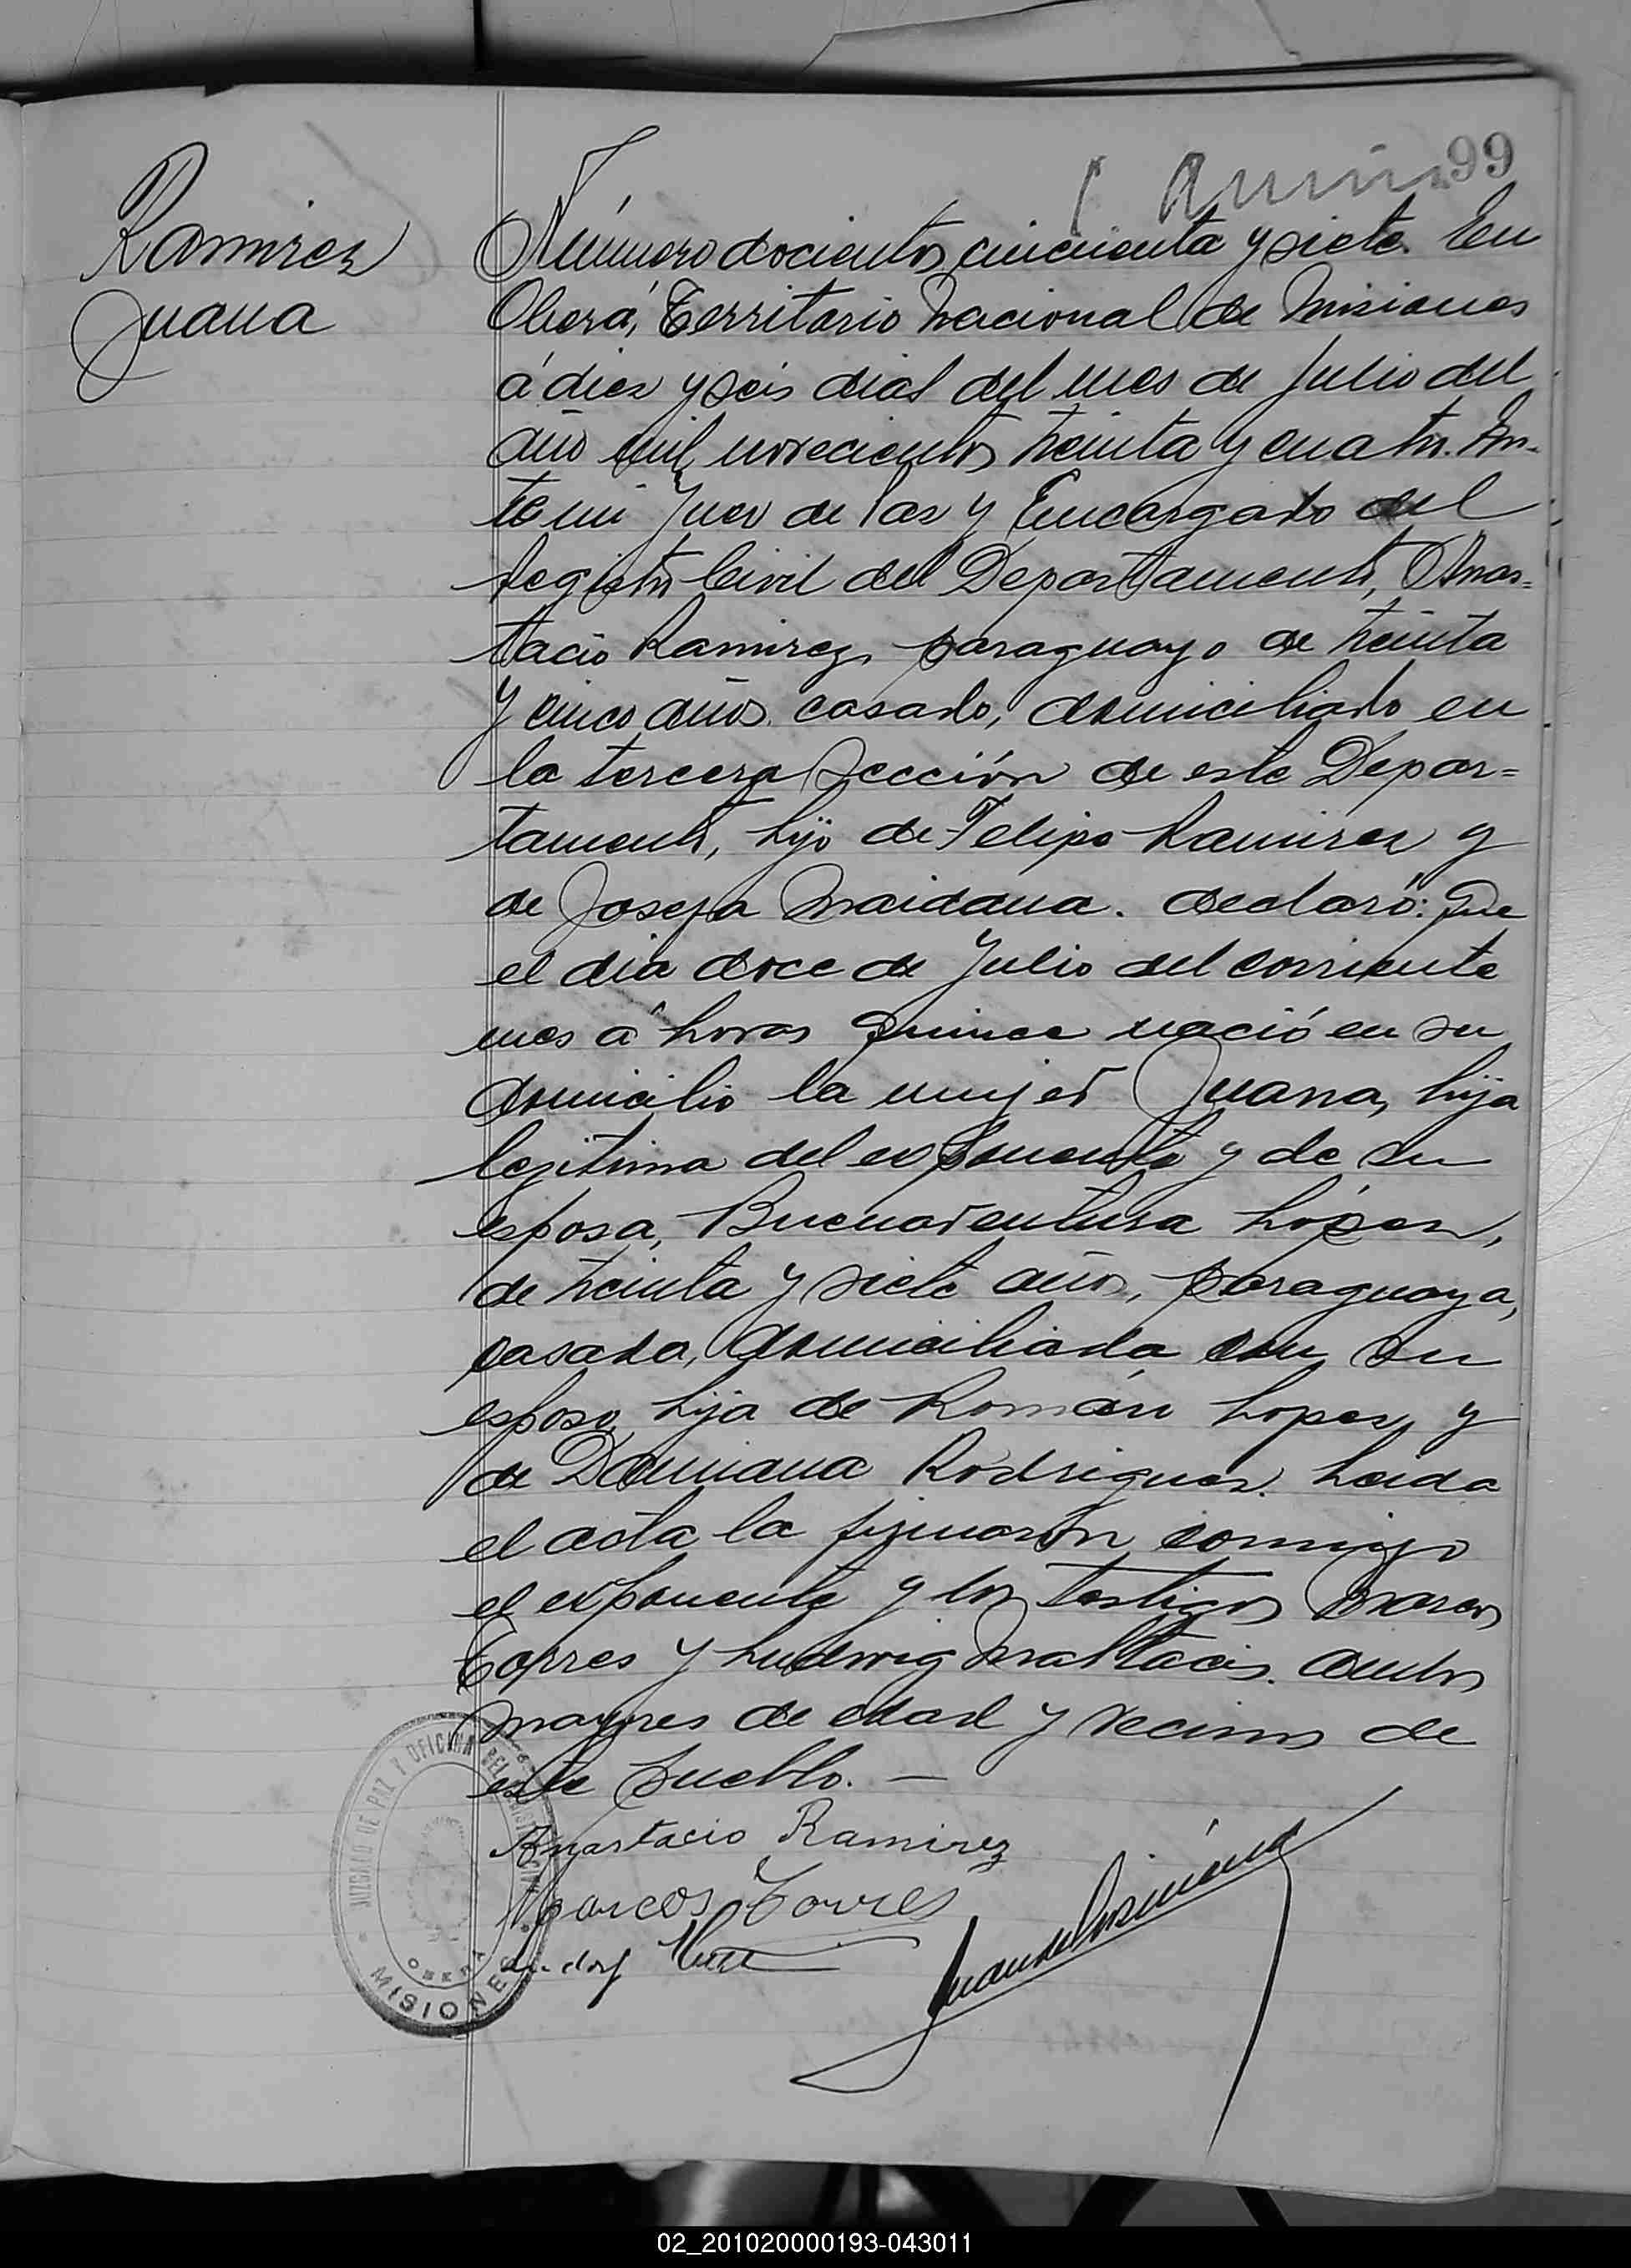 99
Ramirez
Juana
Número docientos cincuenta y siete. En
Oberá, Territorio Nacional de Misiones
á diez y seis dias del mes de Julio del
año mil novecientos treinta y cuatro. An-
te mi Juez de Paz y Encargado del
Registro Civil del Departamento, Anas=
tacio Ramirez, paraguayo de treinta
y cinco años, casado, domiciliado en
la tercera sección de este Depar=
tamento, hijo de Felipe Ramirez y
de Josefa Maidana. declaró: Que
el dia doce de Julio del corriente
mes á horas quince nació en su
domicilio la mujer Juana, hija
legitima del exponente y de su
esposa, Buenaventura López,
de treinta y siete años, paraguaya,
casada, domiciliada con su
esposo, hija de Román Lopez y
de Damiana Rodriguez. Leida
el acta la firmaron conmigo
el exponente y los testigos Marcos
Torres y Ludwig ambos
mayores de edad y vecinos de
este pueblo. —
Anastacio Ramirez
Marcos Torres
JUZGADO DE PAZ Y OFICINA DEL REGISTRO
OBERÁ
MISIONES
02_201020000193-043011